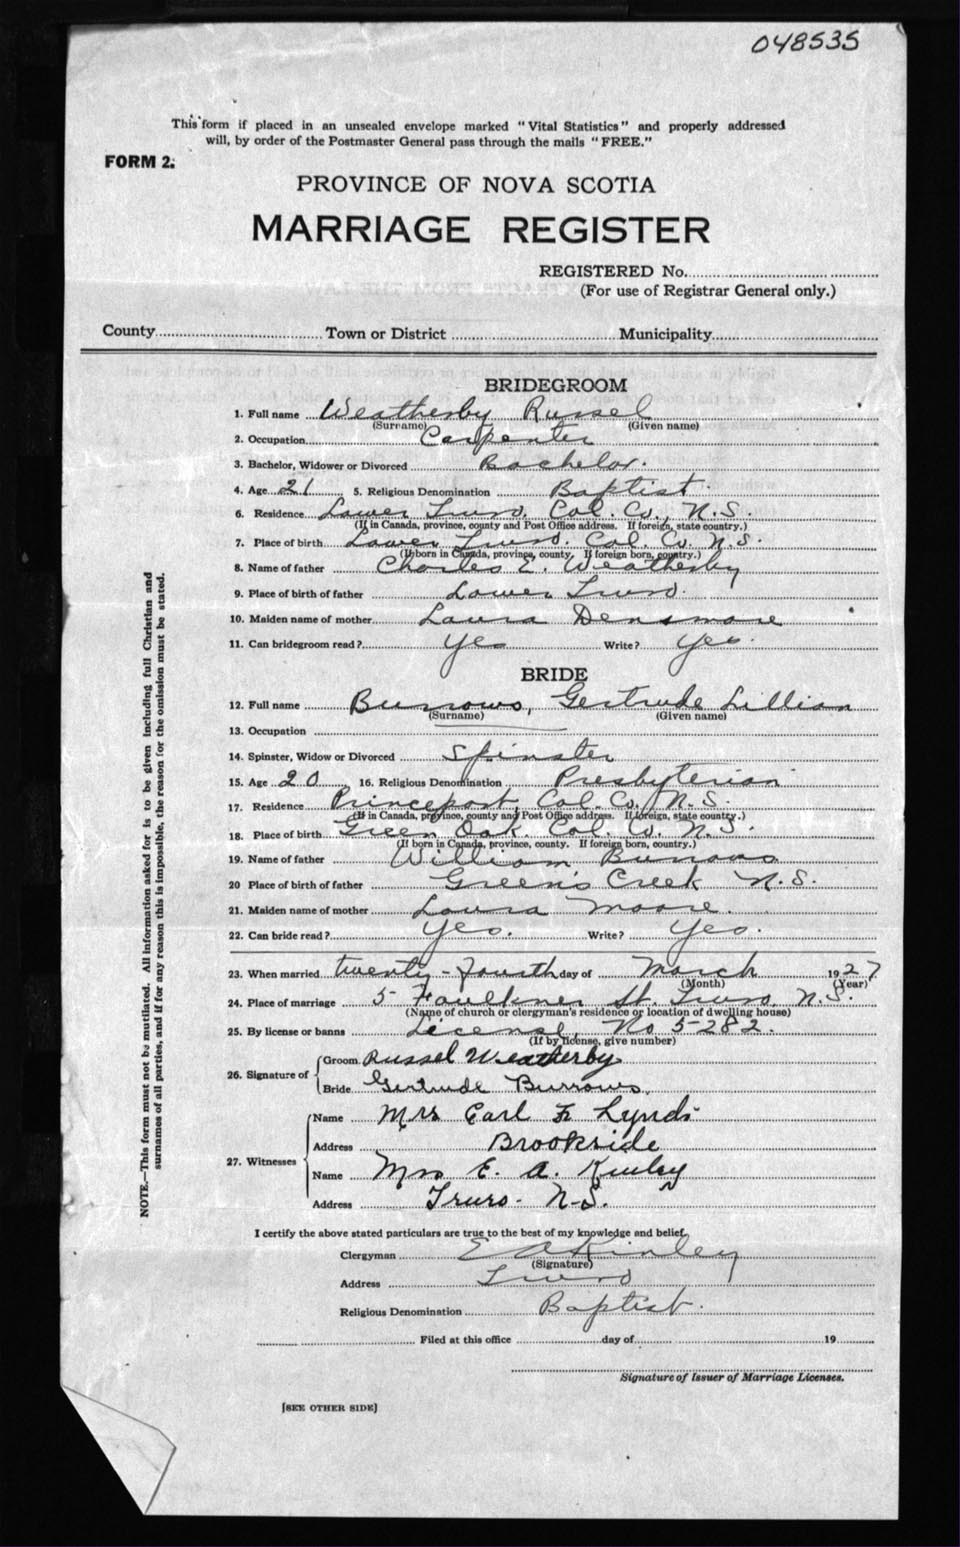 048535
This form if placed in an unsealed envelope marked "Vital Statistics" and properly addressed
will, by order of the Postmaster General pass through the mails "FREE."
FORM 2.
PROVINCE OF NOVA SCOTIA
MARRIAGE REGISTER
REGISTERED No.
(For use of Registrar General only.)
County Town or District Municipality
BRIDEGROOM
1. Full name Weatherby Russel
(Surname) (Given name)
2. Occupation Carpenter
3. Bachelor, Widower or Divorced Bachelor.
4. Age 21 5. Religious Denomination Baptist.
6. Residence Lower Truro, Col. Co., N.S.
(If in Canada, province, county and Post Office address. If foreign, state country.)
7. Place of birth Lower Truro. Col. Co. N.S.
(If born in Canada, province, county. If foreign born, country.)
8. Name of father Charles E. Weatherby
9. Place of birth of father Lower Truro.
10. Maiden name of mother Laura Densmore
11. Can bridegroom read? Yes Write? Yes.
BRIDE
12. Full name Burrows, Gertrude Lillian
(Surname) (Given name)
13. Occupation
14. Spinster, Widow or Divorced Spinster
15. Age 20 16. Religious Denomination Presbyterian
17. Residence Princeport, Col. Co., N.S.
(If in Canada, province, county and Post Office address. If foreign, state country.)
18. Place of birth Green Oak Col. Co. N.S.
(If born in Canada, province, county. If foreign born, country.)
19. Name of father William Burrows
20 Place of birth of father Green's Creek N.S.
21. Maiden name of mother Laura Moore.
22. Can bride read? Yes. Write? Yes.
23. When married twenty-fourth day of March 1927
(Month) (Year)
24. Place of marriage 5 Faulkner St. Truro, N.S.
(Name of church or clergyman's residence or location of dwelling house)
25. By license or banns License, No 5282.
(If by license, give number)
26. Signature of Groom Russel Weatherby
Bride Gertrude Burrows
27. Witnesses
Name Mrs Earl F. Lynds
Address Brookside
Name Mrs E. A. Kinley
Address Truro. N.S.
I certify the above stated particulars are true to the best of my knowledge and belief.
Clergyman E A Kinley
(Signature)
Address Truro
Religious Denomination Baptist.
Filed at this office day of 19
Signature of Issuer of Marriage Licenses.
[SEE OTHER SIDE]
NOTE.—This form must not be mutilated. All information asked for is to be given including full Christian and
surnames of all parties, and if for any reason this is impossible, the reason for the omission must be stated.